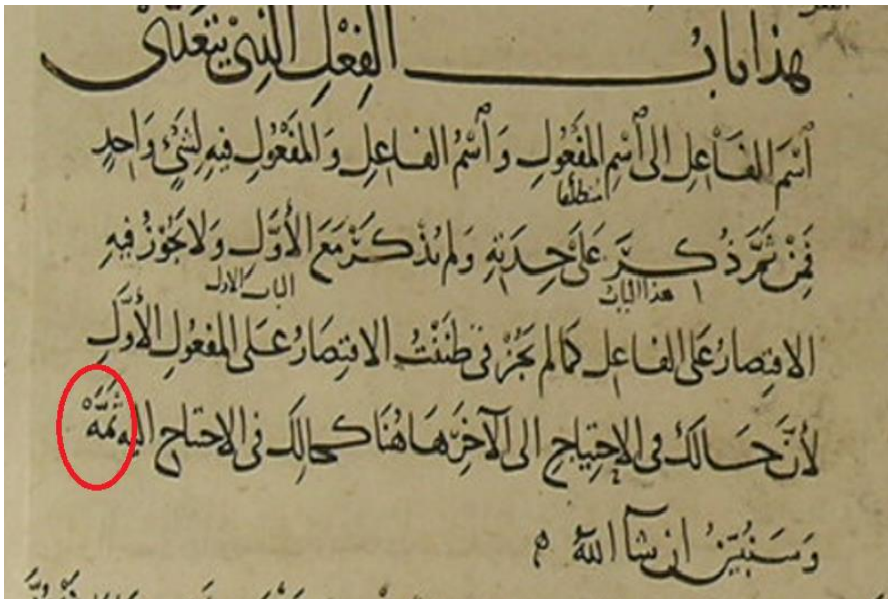 هذا باب الفِعْلِ الَّذِي يَتَعَدَّى
ٱسْمَ الفَاعِلِ الى ٱسْمِ المَفْعُولِ وَٱسْمُ الفاعِلِ وَالمَفْعُولِ فيهِ لِشَيْءٍ وَاحِدٍ
فَمِنْ ثَمَّ ذُكِرَ عَلَى حِدَتِهِ وَلم يُذْكَرْ مَعَ الأَوَّلِ وَلا يَجُوْزُ فيهِ
هذا الباب الباب الاول
الاقتِصَارُ عَلَى الفاعِل كما لم يَجُزْ فى ظَنَنْتُ الاقتِصَارُ عَلى المفعُولِ الأَوَّلِ
لأنَّ حَالَكَ فى الإحْتِيَاجِ الى الآخِرِ هَاهُنَا كحالِكَ فى الاحتياج اليه ثَمَّهْ
وَسَنُبَيّنُ ان شآ اللهُ